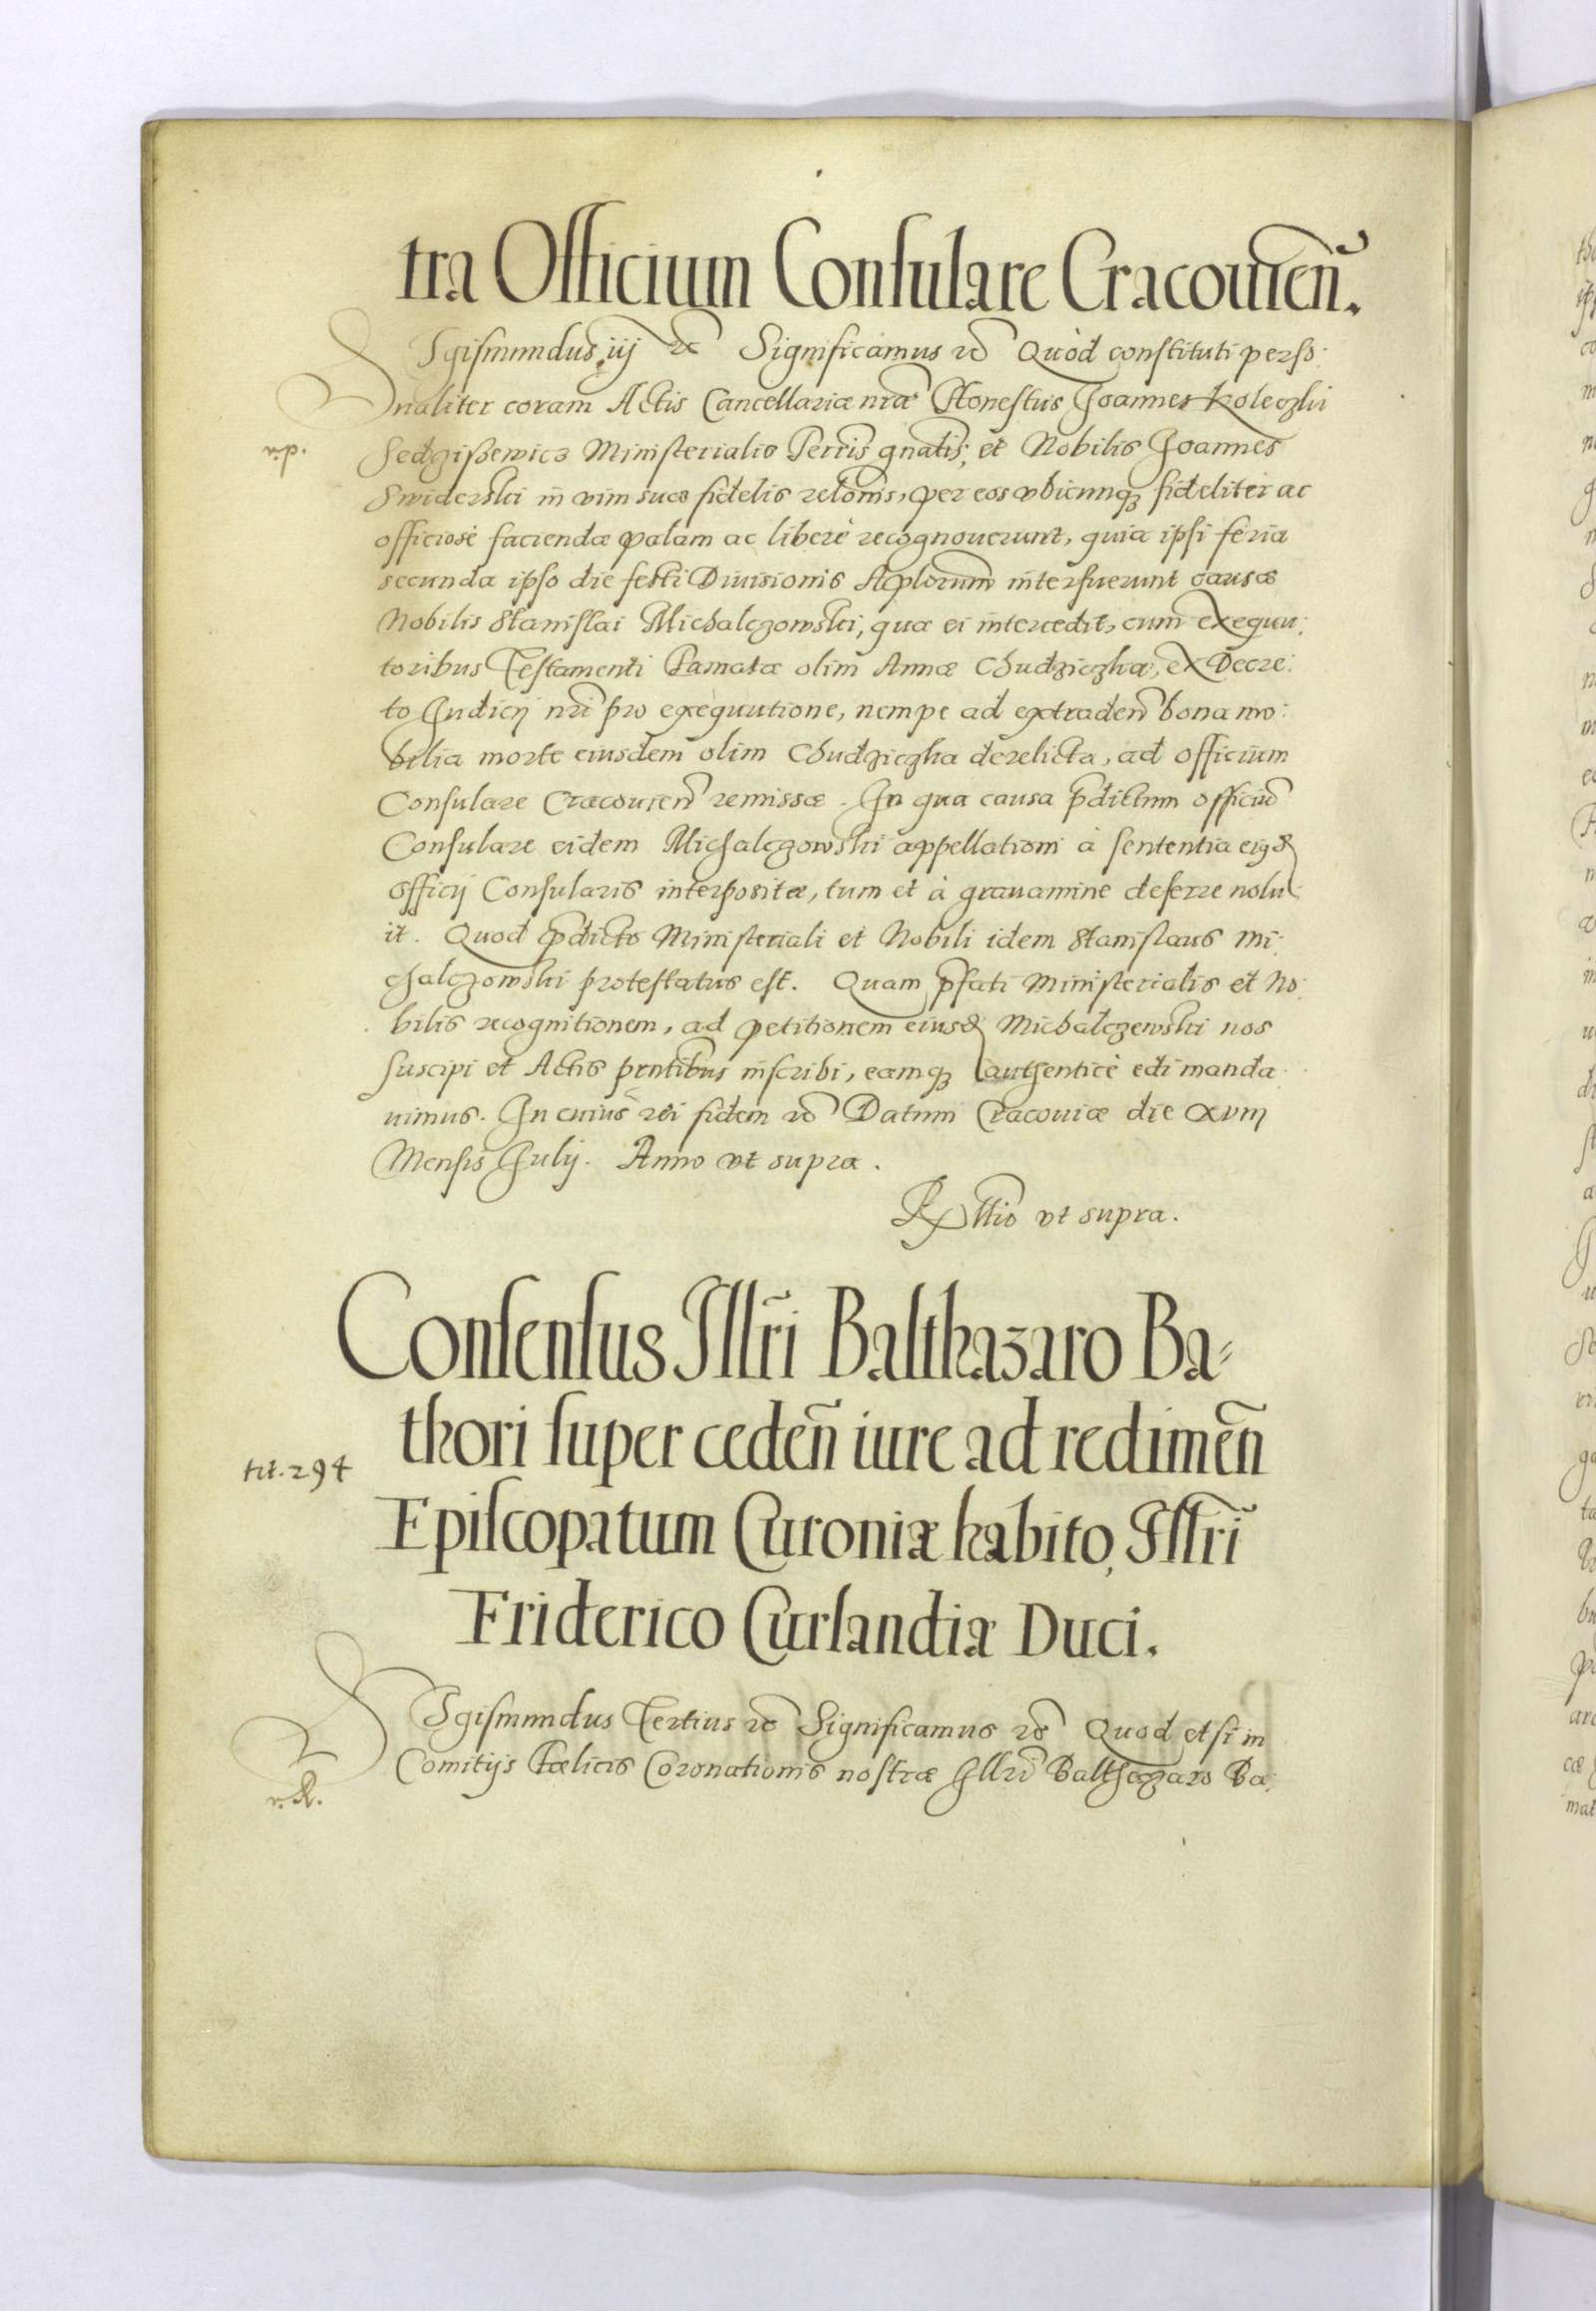 tra Officium Consulare Cracouien̄.
Sigismundus iij ꝛc̄ Significamus ꝛc̄ Quòd constituti perso:
naliter coram Actis Cancellariæ nr̄æ Honestus Joannes Koleczki
Sedziszewicz Ministerialis Terris gn̄alis, et Nobilis Joannes
Swiderski in vim suæ fidelis relōnis, per eos vbicunqꝫ fideliter ac
officiosè faciendæ palam ac liberè recognouerunt, quia ipsi feria
secunda ipso die festi Diuisionis Aplorum̄ interfuerunt causæ
Nobilis Stanislai Michalczowski, quæ ei intercedit, cum exequu:
toribus Testamenti Famatæ olim Annæ Chudziczka, ex Decre:
to Judicij nr̄i pro exequutione, nempe ad extraden̄ bona mo:
bilia morte eiusdem olim Chudziczka derelicta, ad officium
Consulare Cracouien̄ remissæ. In qua causa p̄dictum officiū
Consulare eidem Michalczowski appellationi à sententia eiusd
officij Consularis interpositæ, tum et à grauamine deferre nolu
it. Quod p̄dicto Ministeriali et Nobili idem Stanislaus Mi:
chalczowski protestatus est. Quam p̄fati Ministerialis et No:
bilis recognitionem, ad petitionem eiusd Michalczewski nos
suscipi et Actis pn̄tibus inscribi, eamqꝫ authenticè edi manda
uimus. In cuius rei fidem ꝛc̄ Datum Cracouiæ die xviij
Mensis Julij. Anno vt supra.
Rłłio vt supra.
Consensus Illr̄i Balthazaro Ba⸗
thori super ceden̄ iure ad redimen̄
tit. 294
Episcopatum Curoniæ habito, Illr̄i
Friderico Curlandiæ Duci.
Sigismundus Tertius ꝛc̄ Significamus ꝛc̄ Quod etsi in
Comitijs fœlicis Coronationis nostræ Illr̄i Balthazaro Ba:
r. R.